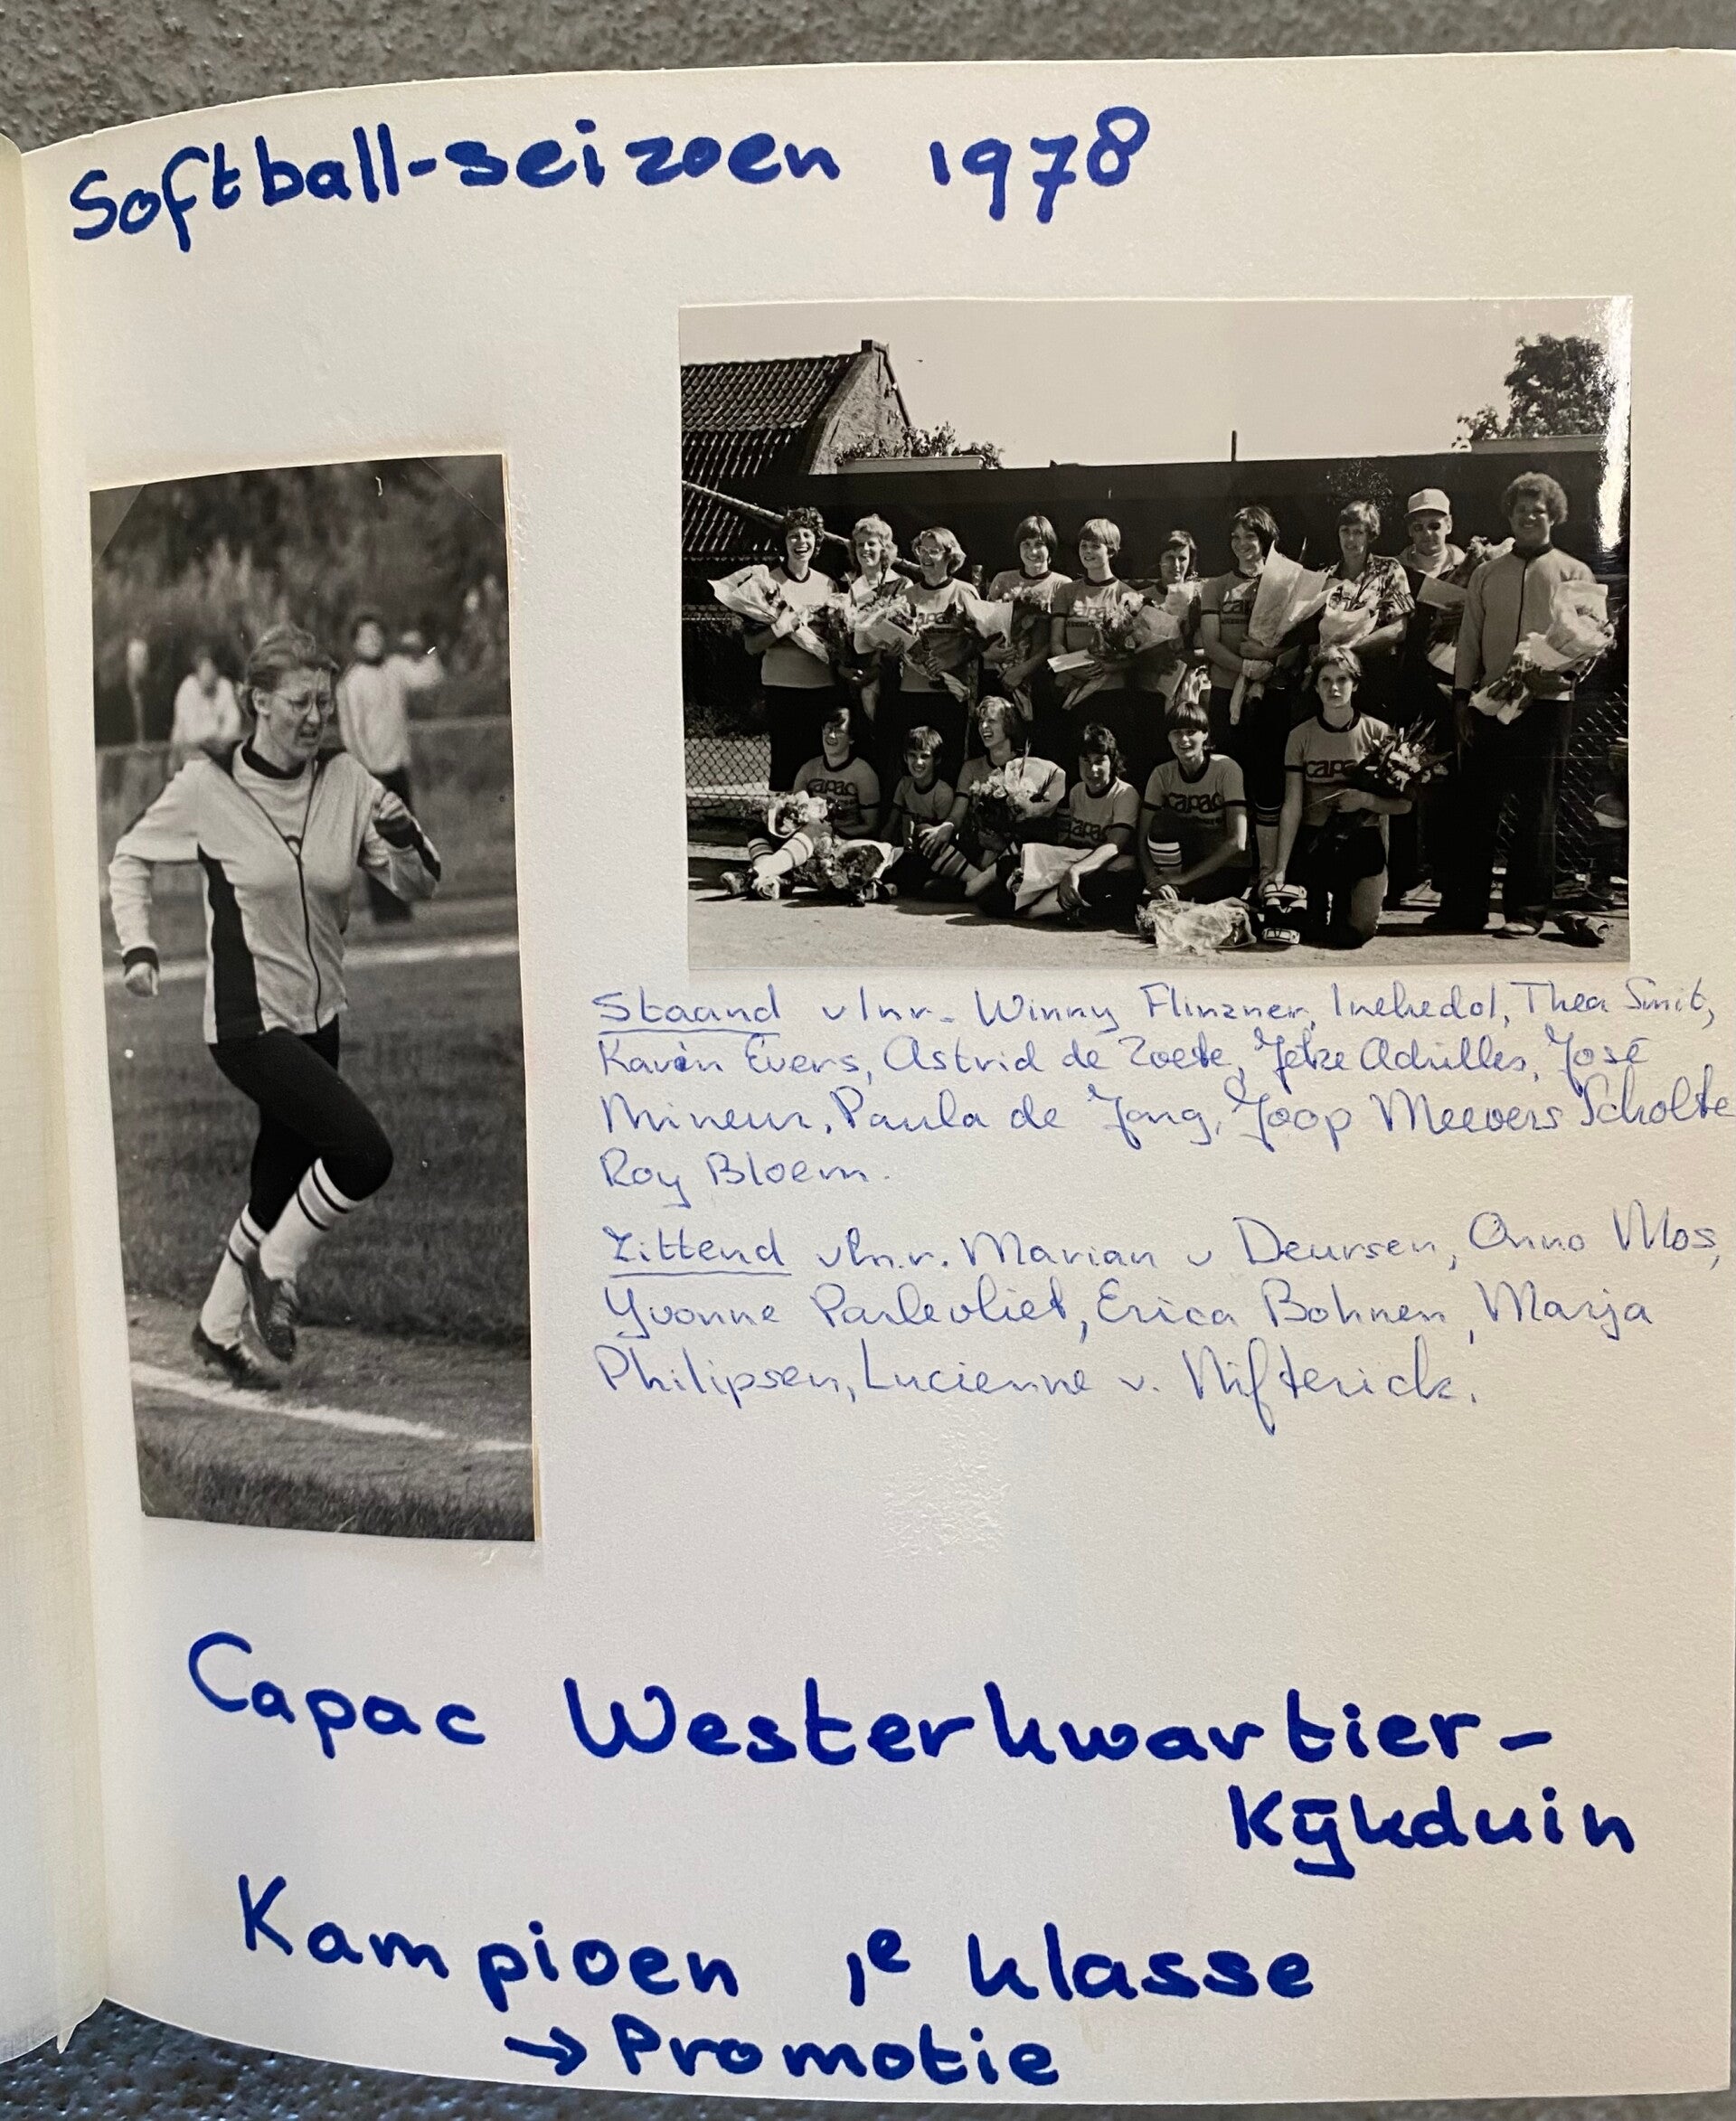 Softball-seizoen 1978
capac
Staand vlnr. Winny Flinzner, Thea Smit,
Karin Evers, Astrid de Zoete, Jetze Achilles, José
Mineur, Paula de Jong, Joop Meevers Scholte
Roy Bloem.
Zittend vln.r. Marian v Deursen, Onno Mos,
Yvonne Parlevliet, Erica Bohnen, Marja
Philipsen, Lucienne v. Nifterick.
Capac Westerkwartier-
Kijkduin
Kampioen 1e klasse
→ Promotie